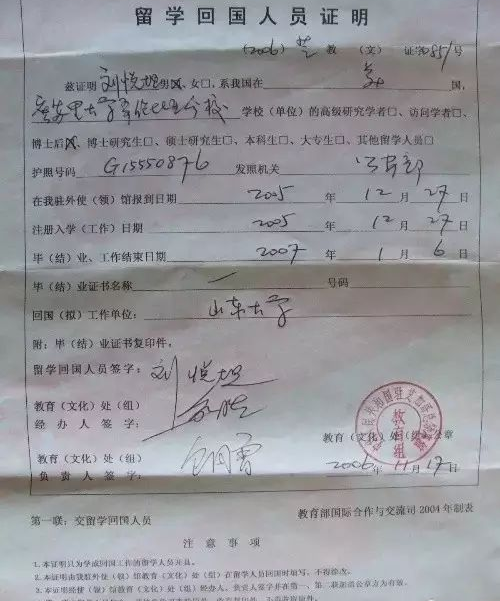 留学回国人员证明
(2006) 芝 教 (文) 证字851号
兹证明 刘悦坦 男☒、女□，系我国在 美 国，
大学 分校 学校（单位）的高级研究学者□、访问学者□、
博士后☒、博士研究生□、硕士研究生□、本科生□、大专生□、其他留学人员□
护照号码 G15550876 发照机关
在我驻外使（领）馆报到日期 2005 年 12 月 27 日
注册入学（工作）日期 2005 年 12 月 27 日
毕（结）业、工作结束日期 2007 年 1 月 6 日
毕（结）业证书名称 一 号码
回国（拟）工作单位： 山东大学
附：毕（结）业证书复印件。
留学回国人员签字： 刘悦坦
教育（文化）处（组）
经 办 人 签 字：
教育（文化）处（组）公章
教育（文化）处（组）
负 责 人 签 字：
2006年 11月 17日
教育组
第一联：交留学回国人员
教育部国际合作与交流司 2004 年制表
注 意 事 项
1.本证明只为学成回国工作的留学人员开具。
2.本证明由我驻外使（领）馆教育（文化）处（组）在留学人员回国时填写，不得涂改。
3.本证明经使（领）馆教育（文化）处（组）经办人、负责人签字并在第一、第二联加盖公章方为有效。